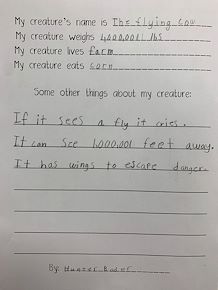 My creature's name is The flying cow
My creature weighs 4,000,001 lbs
My creature lives farm
My creature eats corn
Some other things about my creature:
If it sees a fly it cries.
It can see 1,000,001 feet away.
It has wings to escape danger.
By: Hunter